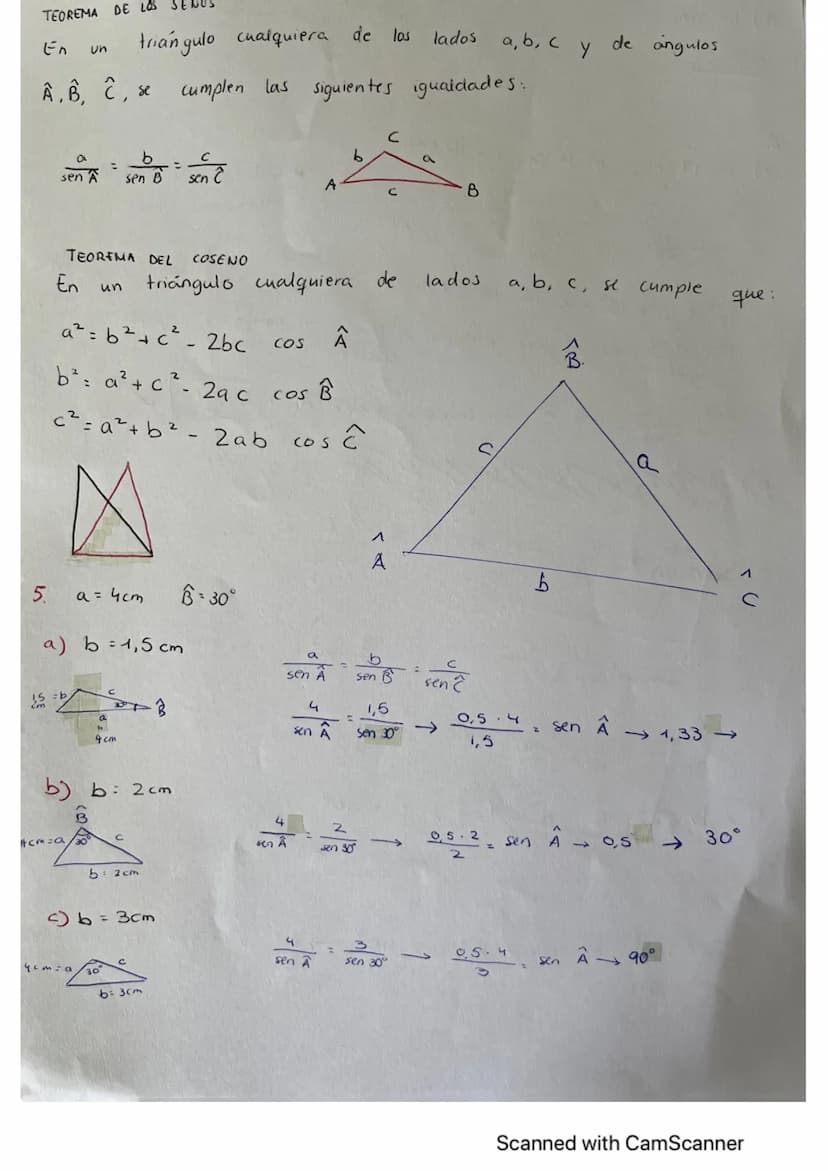 TEOREMA DE LOS SENOS
En un triángulo cualquiera de los lados a, b, c y de ángulos
Â, B̂, Ĉ, se cumplen las siguientes igualdades:
a/sen Â = b/sen B̂ = c/sen Ĉ
C
b a
A c B
TEOREMA DEL COSENO
En un triángulo cualquiera de lados a, b, c, se cumple que:
a² = b² + c² - 2bc cos Â
b² = a² + c² - 2ac cos B̂
c² = a² + b² - 2ab cos Ĉ
B̂
c a
Â b Ĉ
5. a = 4cm B̂ = 30°
a) b = 1,5 cm
a/sen Â = b/sen B̂ = c/sen Ĉ
1,5 cm = b c 30° B̂
a = 4cm
4/sen Â = 1,5/sen 30° → 0,5 · 4/1,5 = sen Â → 1,33 →
b) b = 2cm
B̂
4cm = a 30° c
b = 2cm
4/sen Â = 2/sen 30° → 0,5 · 2/2 = sen Â → 0,5 → 30°
c) b = 3cm
4cm = a 30° c
b = 3cm
4/sen Â = 3/sen 30° → 0,5 · 4/3 = sen Â → 90°
Scanned with CamScanner